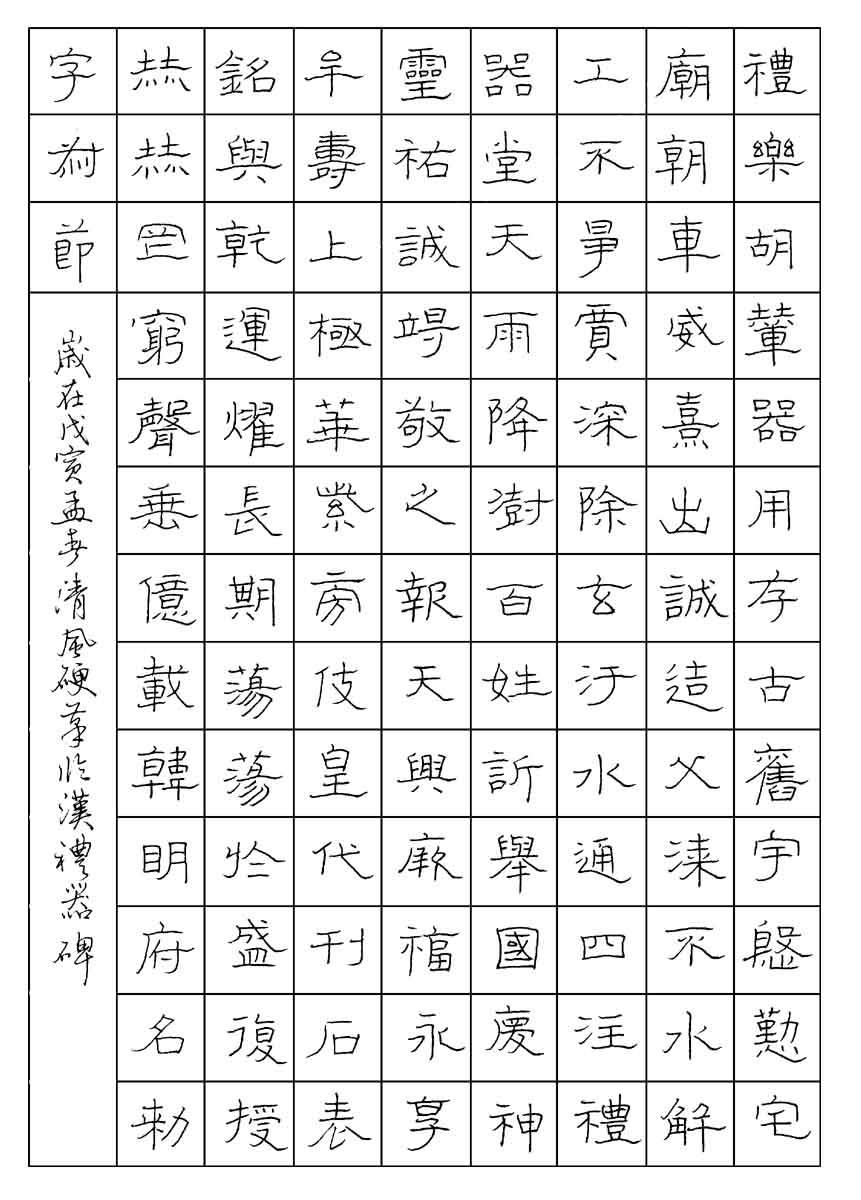 禮樂胡輦器用存古舊宇慇懃宅
廟朝車威熹出誠造父漆不水解
工不爭賈深除玄汙水通四注禮
器堂天雨降澍百姓訢舉國慶神
靈祐誠竭敬之報天興厥福永享
牟壽上極華紫旁伎皇代刊石表
銘與乾運燿長期蕩蕩於盛復授
赫赫罔窮聲垂億載韓明府名勑
字叔節
歲在戊寅孟春清風硬筆臨漢禮器碑